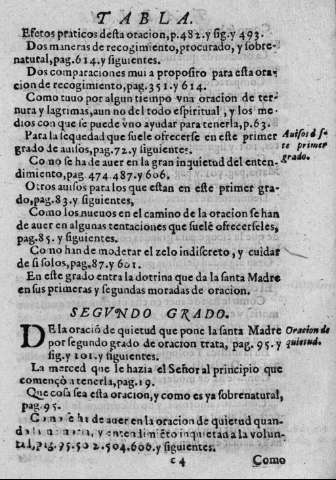 TABLA.
Efetos praticos desta oracion, p.482. y sig. y 493.
Dos maneras de recogimiento, procurado, y sobre-
natural, pag. 614. y siguientes.
Dos comparaciones mui a proposito para esta ora-
cion de recogimiento, pag. 351. y 614.
Como tuuo por algun tiempo vna oracion de ter-
nura y lagrimas, aun no del todo espiritual, y los me-
dios con que se puede vno ayudar para tenerla, p. 63.
Para la sequedad que suele ofrecerse en este primer
grado de auisos, pag. 72. y siguientes.
Auisos d̃ s̃-
te primer
grado.
Como se ha de auer en la gran inquietud del enten-
dimiento, pag. 474. 487. y 606.
Otros auisos para los que estan en este primer gra-
do, pag. 83. y siguientes,
Como los nueuos en el camino de la oracion se han
de auer en algunas tentaciones que suelē ofrecerseles,
pag. 85. y siguientes.
Como han de moderar el zelo indiscreto, y cuidar
de si solos, pag. 87. y 601.
En este grado entra la dotrina que da la santa Madre
en sus primeras y segundas moradas de oracion.
SEGVNDO GRADO.
DE la oraciō de quietud que pone la santa Madre
por segundo grado de oracion trata, pag. 95. y
sig. y 101. y siguientes.
Oracion de
quietud.
La merced que le hazia el Señor al principio que
començò a tenerla, pag. 19.
Que cosa sea esta oracion, y como es ya sobrenatural,
pag. 95.
Como se ha de auer en la oracion de quietud quan-
do la memoria, y entendimiēto inquietan a la volun-
tad, pag. 95. 502. 504. 606. y siguientes.
c4 Como